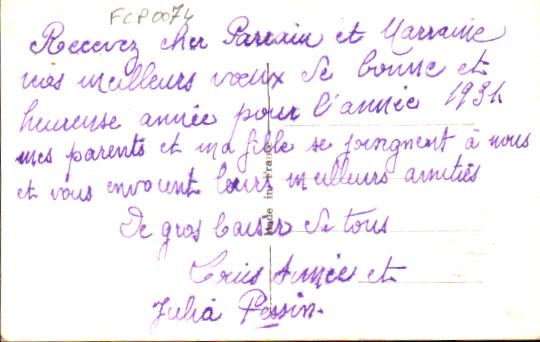 FCP0074
Recevez cher Parrain et Marraine
nos meilleurs vœux de bonne et
heureuse année pour l'année 1934
mes parents et ma fille se joingnent à nous
et vous envoient leurs meilleurs amitiés
De gros baiser de tous
Louis Aimée et
Julia Possin.
Made in France